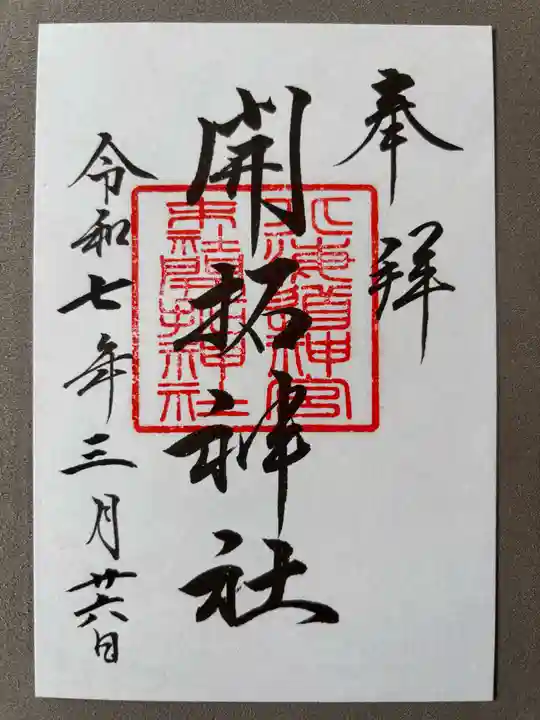 奉拝
開拓神社
北海道神宮
末社開拓神社
令和七年三月廿六日